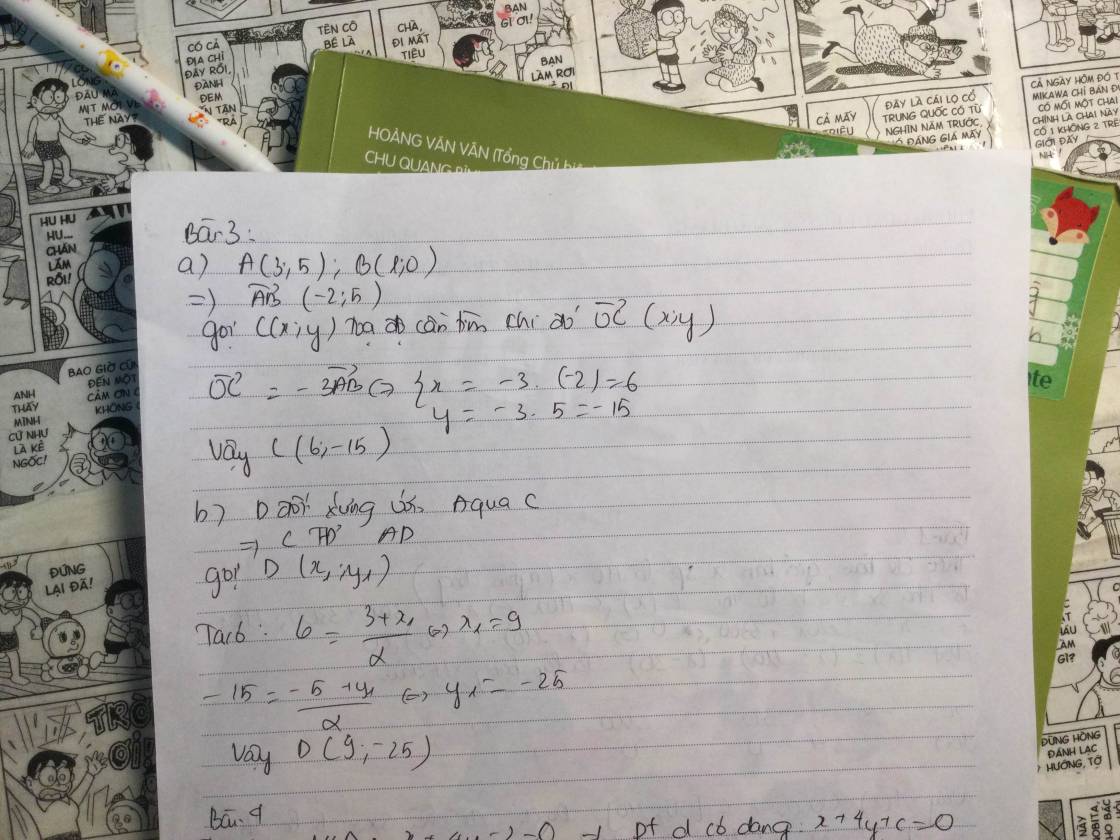 TÊN CÔ
BÉ LÀ
CHÀ,
ĐI MẤT
TIÊU
BẠN
GÌ ƠI!
BẠN
LÀM RƠI
CÓ CẢ
ĐỊA CHỈ
ĐÂY RỒI,
ĐÀNH
ĐEM
TẬN
TRẢ
ĐẦU MÀ
MỊT MỜI VỀ
THẾ NÀY?
CẢ MẤY
TRIỆU
ĐÂY LÀ CÁI LỌ CỔ
TRUNG QUỐC CÓ TỪ
NGHÌN NĂM TRƯỚC,
ĐÁNG GIÁ MẤY
CẢ NGÀY HÔM ĐÓ T
MIKAWA CHỈ BÁN ĐƯ
CÓ MỖI MỘT CHA
CHÍNH LÀ CHAI NÀY
CÓ 1 KHÔNG 2 TRÊ
GIỚI ĐẤY
HOÀNG VĂN VÂN (Tổng Chủ biê
CHU QUANG BÌN
HU HU
HU...
CHÁN
LẮM
RỒI!
BAO GIỜ CŨN
ĐẾN MỘT
CẢM ƠN C
KHÔNG
ANH
THẤY
MÌNH
CỨ NHƯ
LÀ KẺ
NGỐC!
ĐỨNG
LẠI ĐÃ!
TRỜ
ƠI!
GÌ?
ĐỪNG HÒNG
ĐÁNH LẠC
HƯỚNG, TỚ
Bài 3:
a) A(3;5); B(1;0)
=) AB (-2;5)
gọi C(x;y) tọa độ cần tìm khi đó OC (x;y)
OC = -3AB <=> { x = -3. (-2) = 6
y = -3. 5 = -15
Vậy C (6;-15)
b) D đối xứng với A qua C
=> C TĐ AD
gọi D (x₁;y₁)
Ta có: 6 = (3+x₁)/2 <=> x₁ = 9
-15 = (-5+y₁)/2 <=> y₁ = -25
Vậy D (9;-25)
Bài 4
pt d có dạng: x+4y+c=0